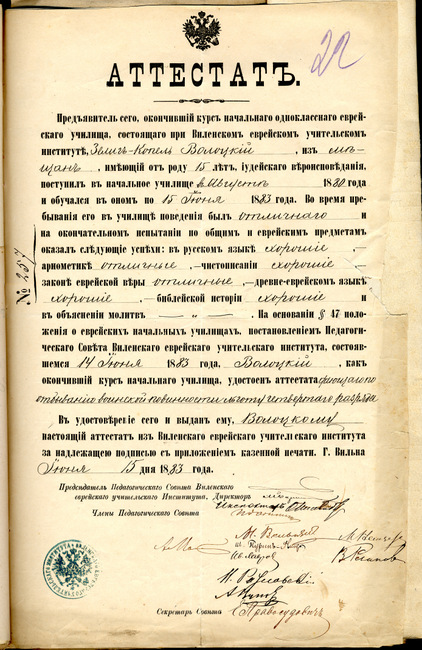 22
АТТЕСТАТЪ.
Предъявитель сего, окончившій курсъ начальнаго однокласснаго еврей-
скаго училища, состоящаго при Виленскомъ еврейскомъ учительскомъ
институтѣ, Зелигъ-Копель Волоцкій, изъ мѣ-
щанъ, имѣющій отъ роду 15 лѣтъ, іудейскаго вѣроисповѣданія,
поступилъ въ начальное училище въ Августѣ 1880 года
и обучался въ ономъ по 15 Іюня 1883 года. Во время пре-
быванія его въ училищѣ поведенія былъ отличнаго и
на окончательномъ испытаніи по общимъ и еврейскимъ предметамъ
оказалъ слѣдующіе успѣхи: въ русскомъ языкѣ хорошіе,
ариѳметикѣ отличные, чистописаніи хорошіе
законѣ еврейской вѣры отличные, древне-еврейскомъ языкѣ
хорошіе, библейской исторіи хорошіе и
въ объясненіи молитвъ — „ —. На основаніи § 47 поло-
женія о еврейскихъ начальныхъ училищахъ, постановленіемъ Педагоги-
ческаго Совѣта Виленскаго еврейскаго учительскаго института, состояв-
шемся 14 Іюня 1883 года, Волоцкій, какъ
окончившій курсъ начальнаго училища, удостоенъ аттестата дающаго по
отбыванію воинской повинности льготу четвертаго разряда
Въ удостовѣреніе сего и выданъ ему, Волоцкому
настоящій аттестатъ изъ Виленскаго еврейскаго учительскаго института
за надлежащею подписью съ приложеніемъ казенной печати. Г. Вильна
Іюня 15 дня 1883 года.
№ 257
Предсѣдатель Педагогическаго Совѣта Виленскаго
еврейскаго учительскаго Института, Директоръ
Инспекторъ
Члены Педагогическаго Совѣта
Секретарь Совѣта Правосудовичъ